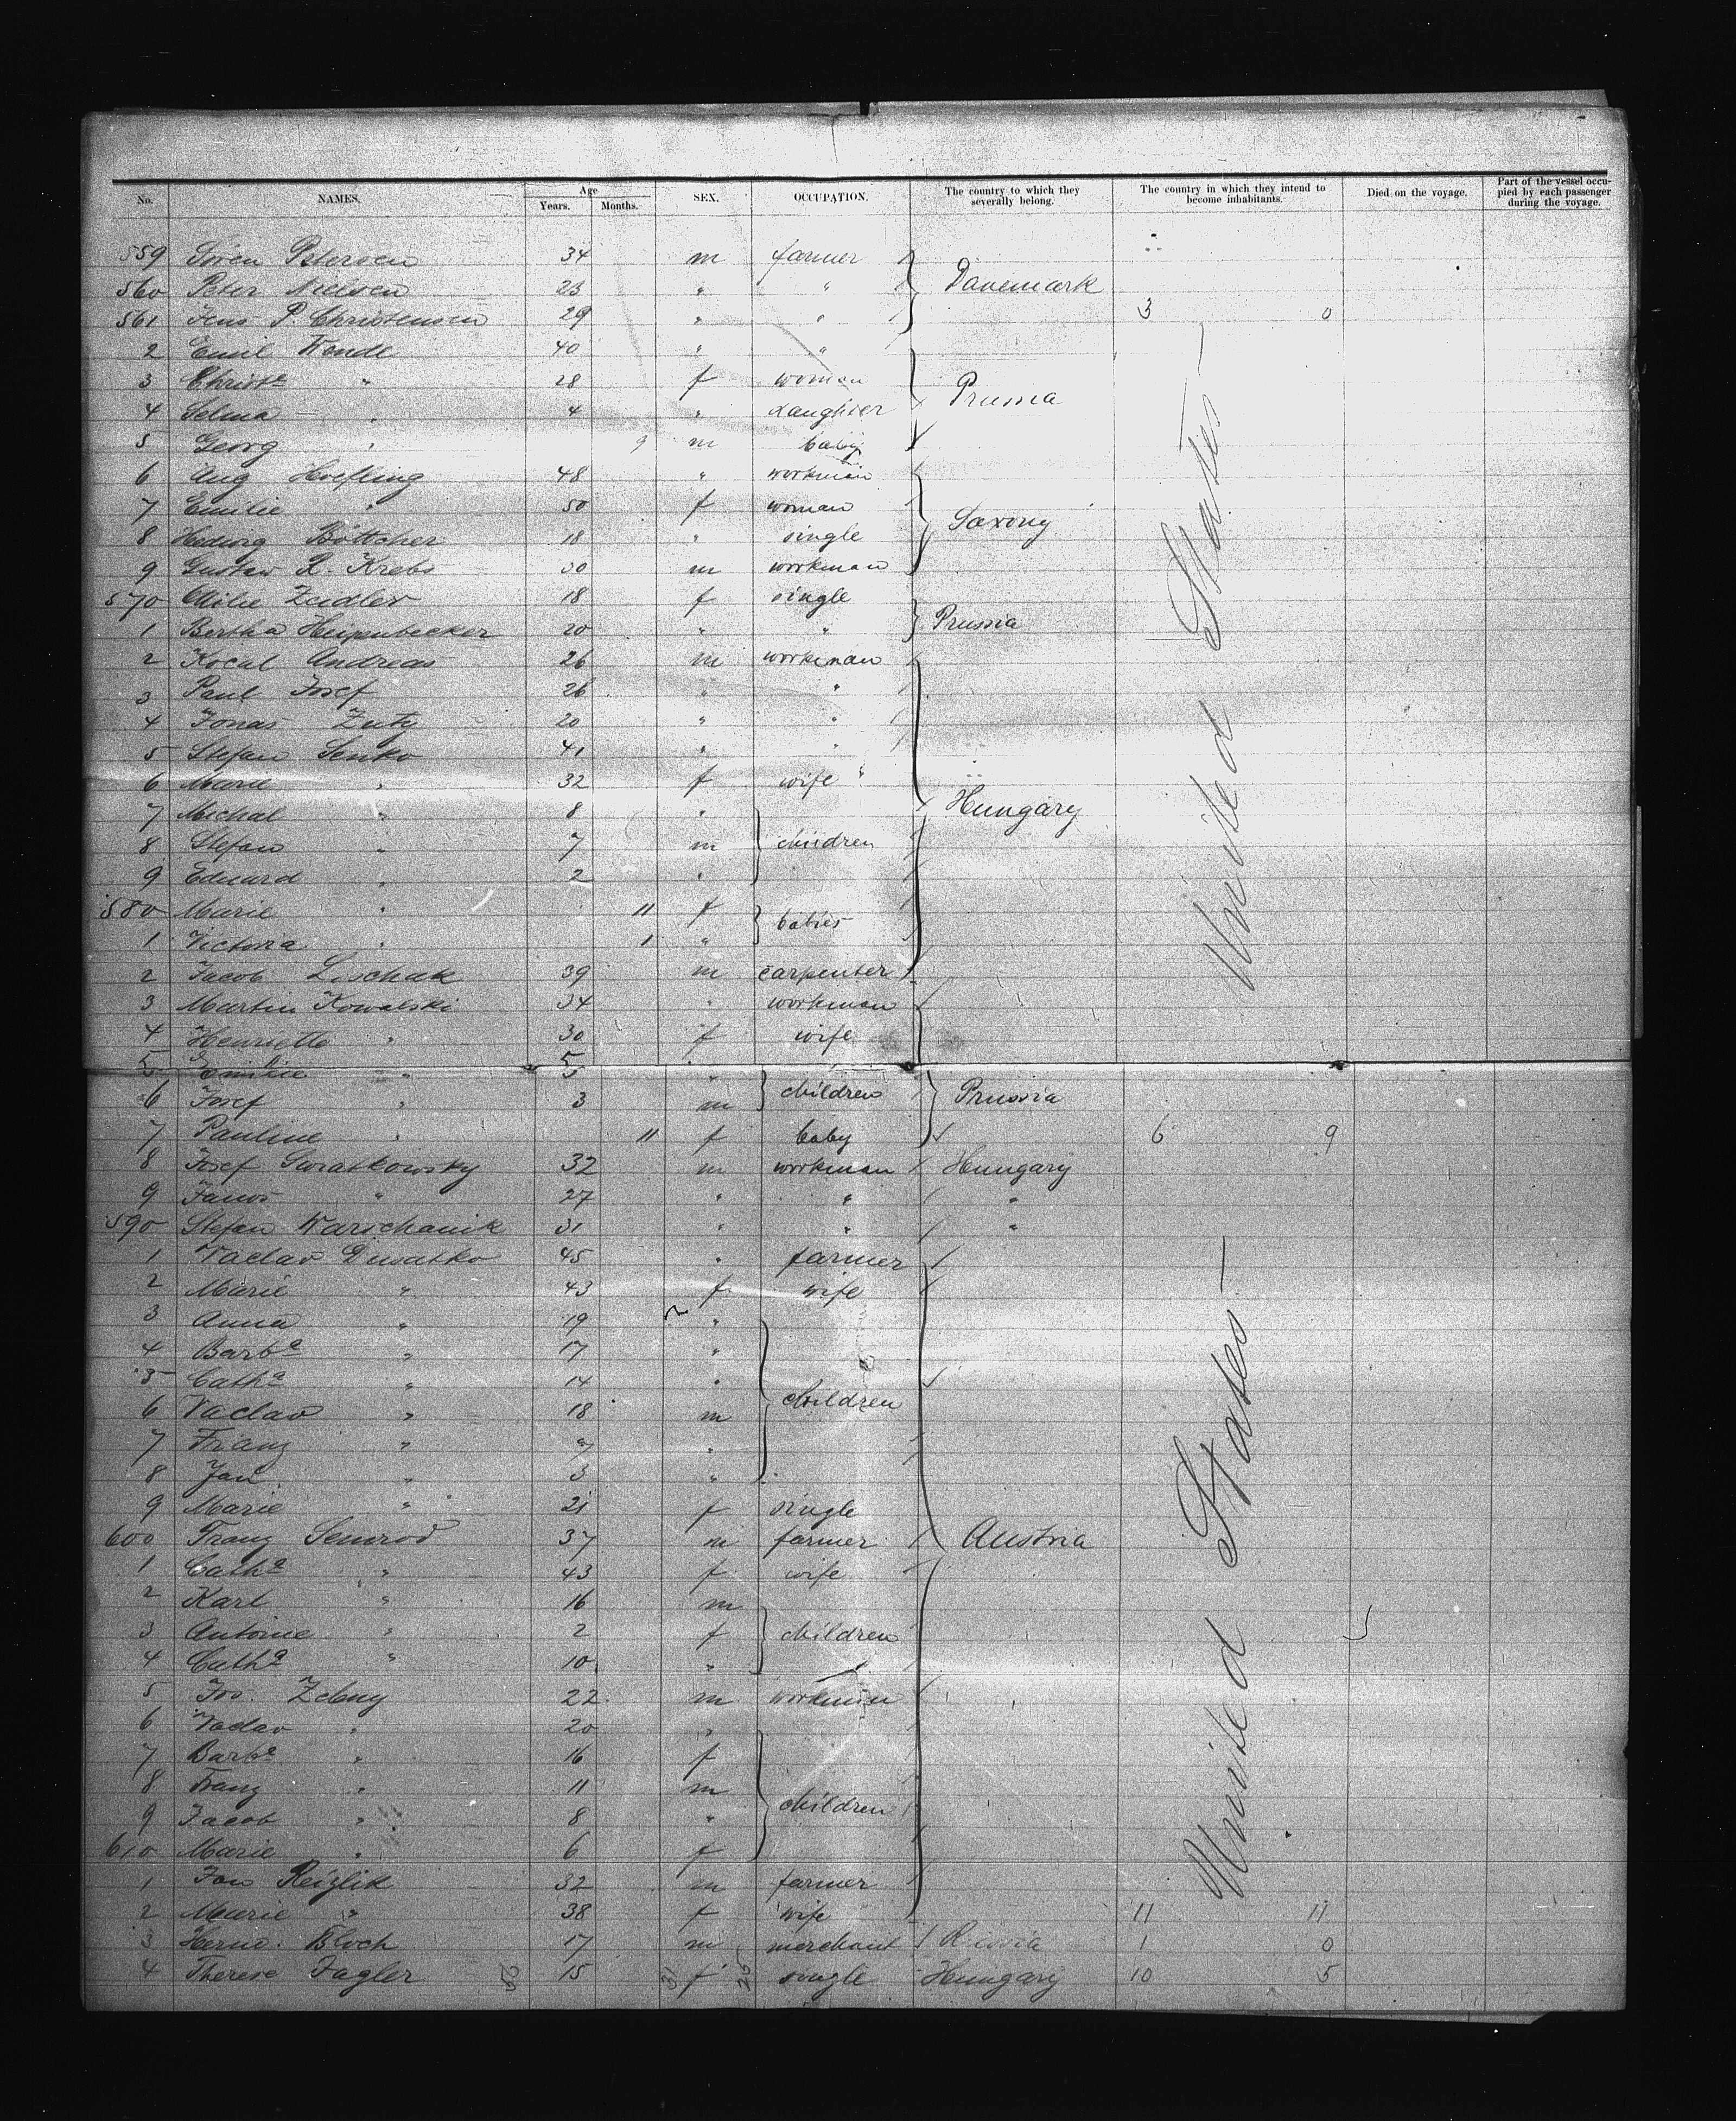 No. NAMES. Age Years. Months. SEX. OCCUPATION. The country to which they severally belong. The country in which they intend to become inhabitants. Died on the voyage. Part of the vessel occupied by each passenger during the voyage.
559 Sören Petersen 34 m farmer
560 Peter Nielsen 23 " " Danemark
561 Jens P. Christensen 29 " " 3 0
2 Emil Wende 40 " "
3 Christe " 28 f woman Prussia
4 Selma " 4 " daughter
5 Georg " 9 m baby
6 Aug Hoefling 48 " workman
7 Emilie " 50 f woman Saxony
8 Hedwig Böttcher 18 " single
9 Gustav R. Krebs 30 m workman
570 Zeidler 18 f single
1 Bertha 20 " " Prussia
2 Kocal Andreas 26 m workman
3 Paul Josef 26 " "
4 Jonas Zuty 20 " "
5 Stefan Senko 41 " "
6 Marie " 32 f wife "
7 Michal " 8 " Hungary
8 Stefan " 7 m children
9 Eduard " 2 "
580 Marie " 11 f babies
1 Victoria " 1 "
2 Jacob Lischak 39 m carpenter
3 Martin Kowalski 34 " workman
4 Henriette " 30 f wife
United States
5 Emilie " 5 "
6 Josef " 3 m children Prussia
7 Pauline " 11 f baby 6 9
8 Josef Swiatkowsky 32 m workman Hungary
9 Janos " 27 " " "
590 Stefan Warschanik 31 " " "
1 Vaclav 45 " farmer
2 Marie " 43 f wife
3 Anna " 19 "
4 Barba " 17 "
5 Catha " 14 "
6 Vaclav " 18 m children
7 Franz " 9 "
8 Jan " 3 "
9 Marie " 21 f single
600 Franz Semrod 37 m farmer Austria
1 Catha " 43 f wife
2 Karl " 16 m
3 Antonie " 2 f children
4 Catha " 10 "
5 Jos. Zeleny 22 m workman
6 Vaclav " 20 "
7 Barba " 16 f
8 Franz " 11 m
9 Jacob " 8 " children
610 Marie " 6 f
1 Jan Reizlik 32 m farmer
2 Marie " 38 f wife 11 11
3 Herm. Bloch 17 m merchant Russia 1 0
4 Therese Fagler 15 f single Hungary 10 5
United States